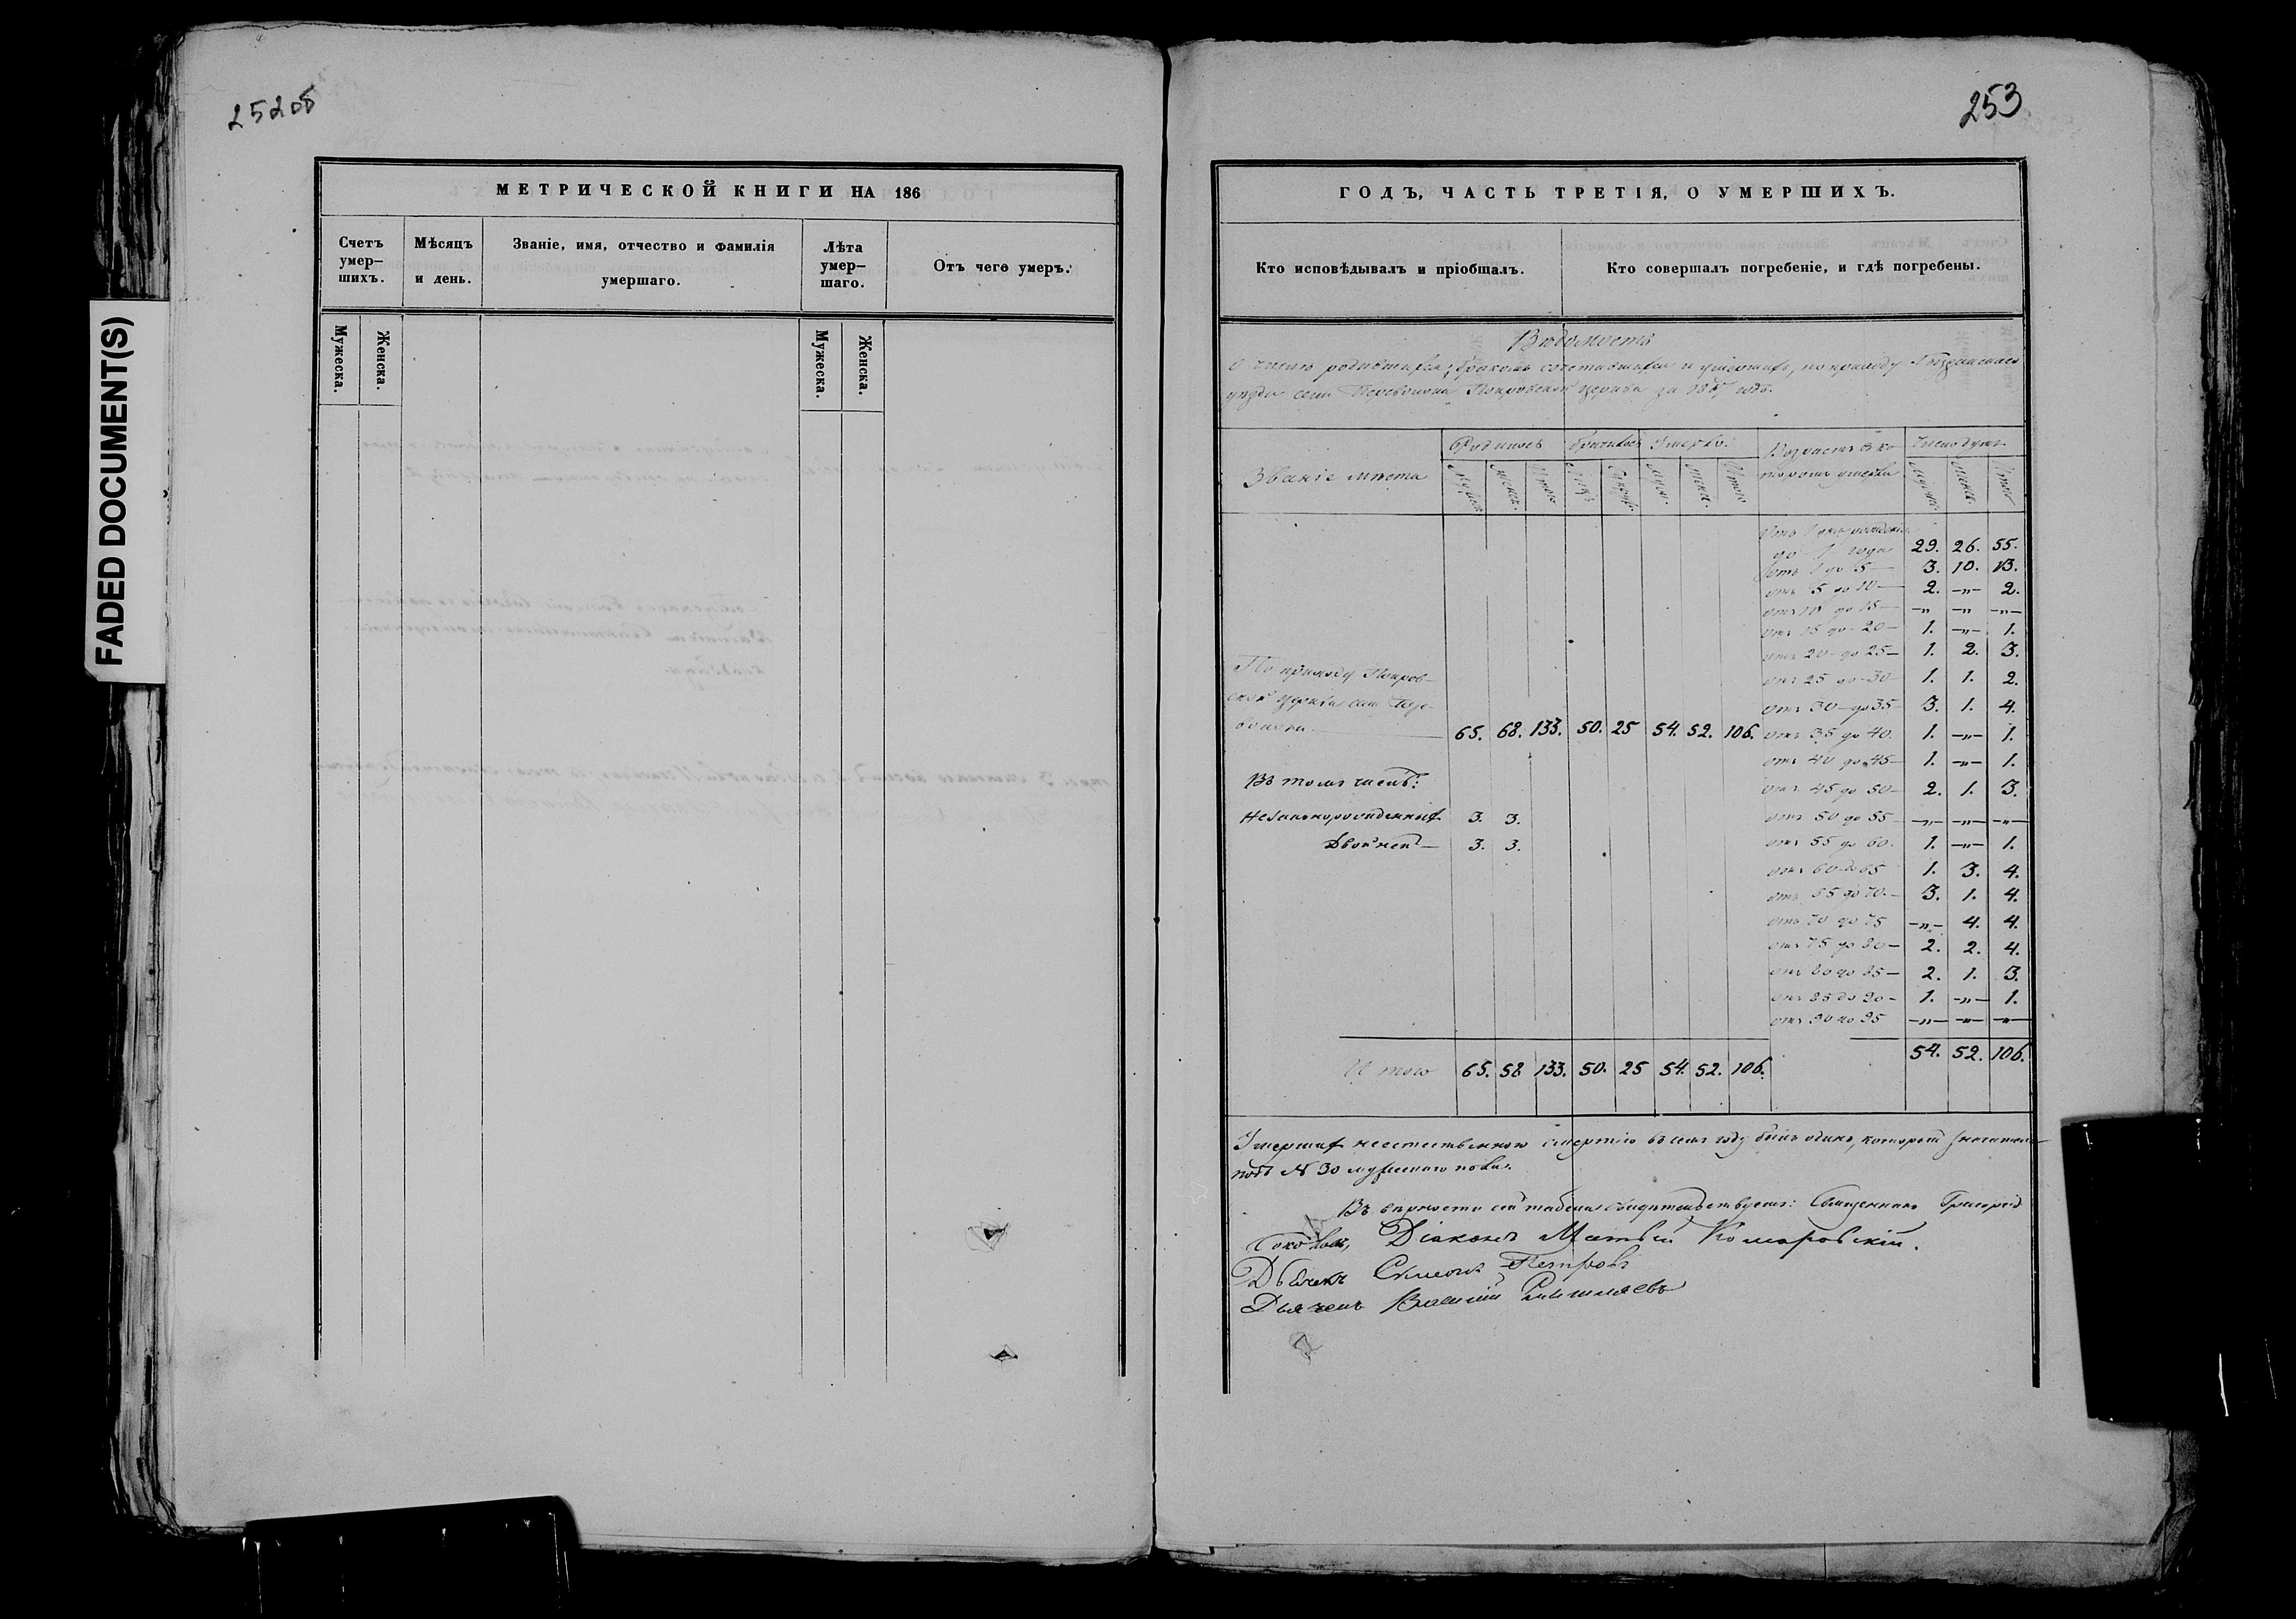 252об
253
FADED DOCUMENT(S)
МЕТРИЧЕСКОЙ КНИГИ НА 186
Счетъ умер-
шихъ.
Мѣсяцъ
и день.
Званіе, имя, отчество и фамилія
умершаго.
Лѣта
умер-
шаго.
Отъ чего умеръ.
Мужеска.
Женска.
Мужеска.
Женска.
ГОДЪ, ЧАСТЬ ТРЕТІЯ, О УМЕРШИХЪ.
Кто исповѣдывалъ и пріобщалъ.
Кто совершалъ погребеніе, и гдѣ погребены.
Вѣдомость
О числѣ родившихся, бракомъ сочетавшихся и умершихъ, по приходу
уѣзда села Покровской церкви за годъ.
Званіе мѣста
Родилось
Умерло.
Возрастъ въ ко-
торомъ умерли
Число душъ
Итого
Муж.
Женск.
Итого
Женск.
Итого
до 1 года 29. 26. 55.
отъ 1 до 5 — 3. 10. 13.
отъ 5 до 10 — 2. —„— 2.
отъ 10 до 15 — —„ —„ —„—
отъ 15 до 20 — 1. —„— 1.
отъ 20 до 25 — 1. 2. 3.
отъ 25 до 30 1. 1. 2.
отъ 30 — до 35 — 3. 1. 4.
По приходу Покров-
ской церкви села
65. 68. 133. 50. 25 54. 52. 106. отъ 35 до 40. 1. —„— 1.
отъ 40 до 45 — 1. —„— 1.
Въ томъ числѣ:
отъ 45 до 50 — 2. 1. 3.
Незаконорожденныхъ 3. 3.
отъ 50 до 55 —„— —„— —„—
Двойней — 3. 3.
отъ 55 до 60. 1. —„— 1.
отъ 60 до 65 1. 3. 4.
отъ 65 до 70. — 3. 1. 4.
отъ 70 до 75 —„— 4. 4.
отъ 75 до 80 — 2. 2. 4.
отъ 80 до 85 — 2. 1. 3.
отъ 85 до 90 — 1. —„— 1.
отъ 90 до 95 —„— —„— —„—
54. 52. 106.
Итого 65. 58 133. 50. 25 54. 52. 106.
Умершихъ неестественною смертію въ семъ году былъ одинъ, который
подъ № 30 мужескаго пола.
Въ вѣрности сей табели свидѣтельствуемъ: Священникъ Григорій
Діаконъ Матвѣй Комаровскій.
Дьячекъ Симеонъ Петровъ
Дьячекъ Василій